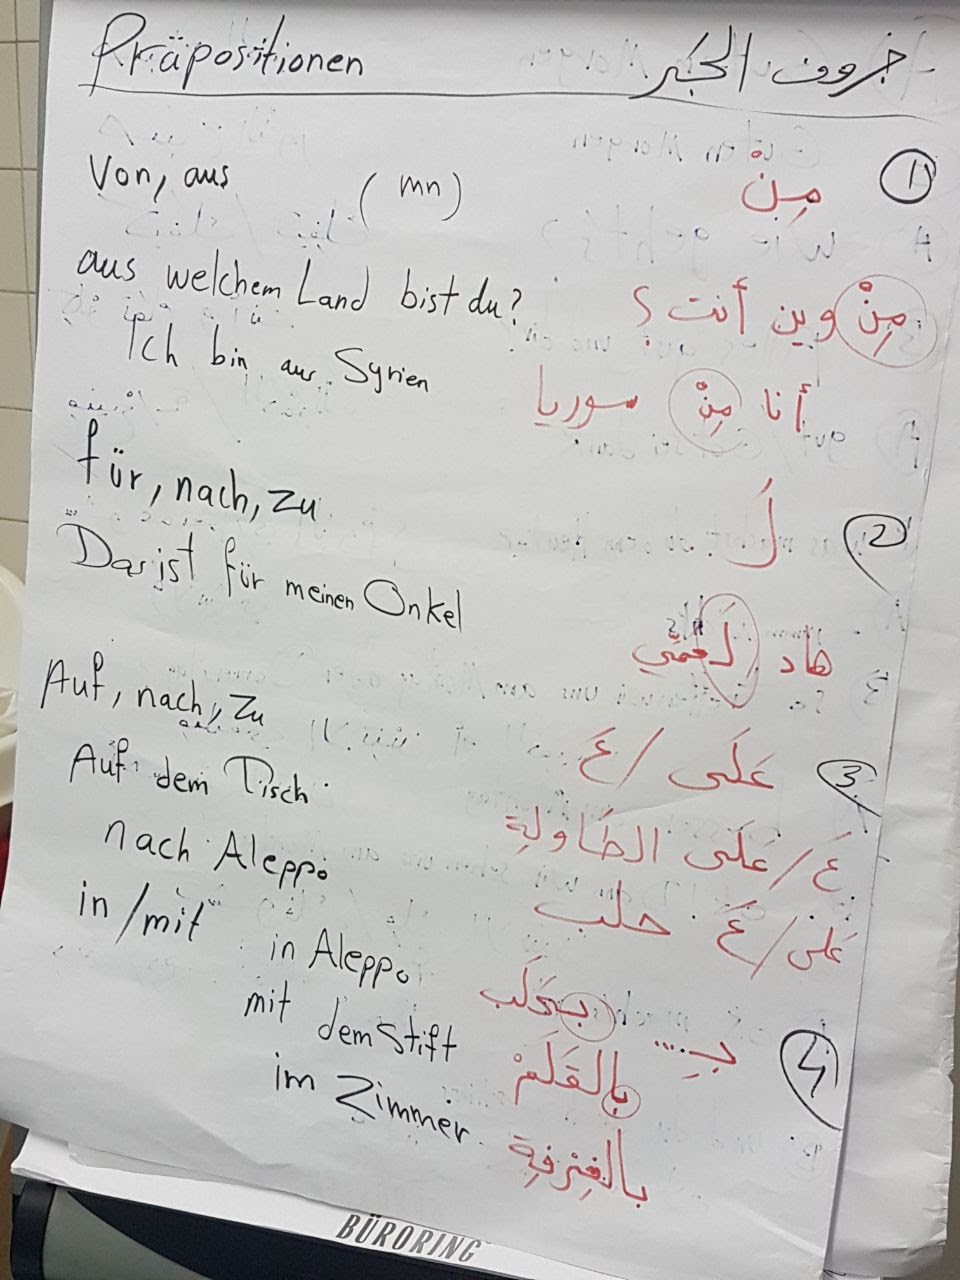 Präpositionen حروف الجر
① مِنْ
Von, aus (mn)
aus welchem Land bist du? مِنْ وين أنت؟
Ich bin aus Syrien أنا مِنْ سوريا
② لَ
für, nach, zu
Das ist für meinen Onkel هاد لَعمّي
③ عَلَى / عَ
Auf, nach, zu
Auf dem Tisch عَ/عَلَى الطَاولِة
nach Aleppo عَلى/عَ حلب
④ بِـ....
in/mit
in Aleppo بِحَلَب
mit dem Stift بِالقَلَمْ
im Zimmer بالغِرفِة
BÜRORING